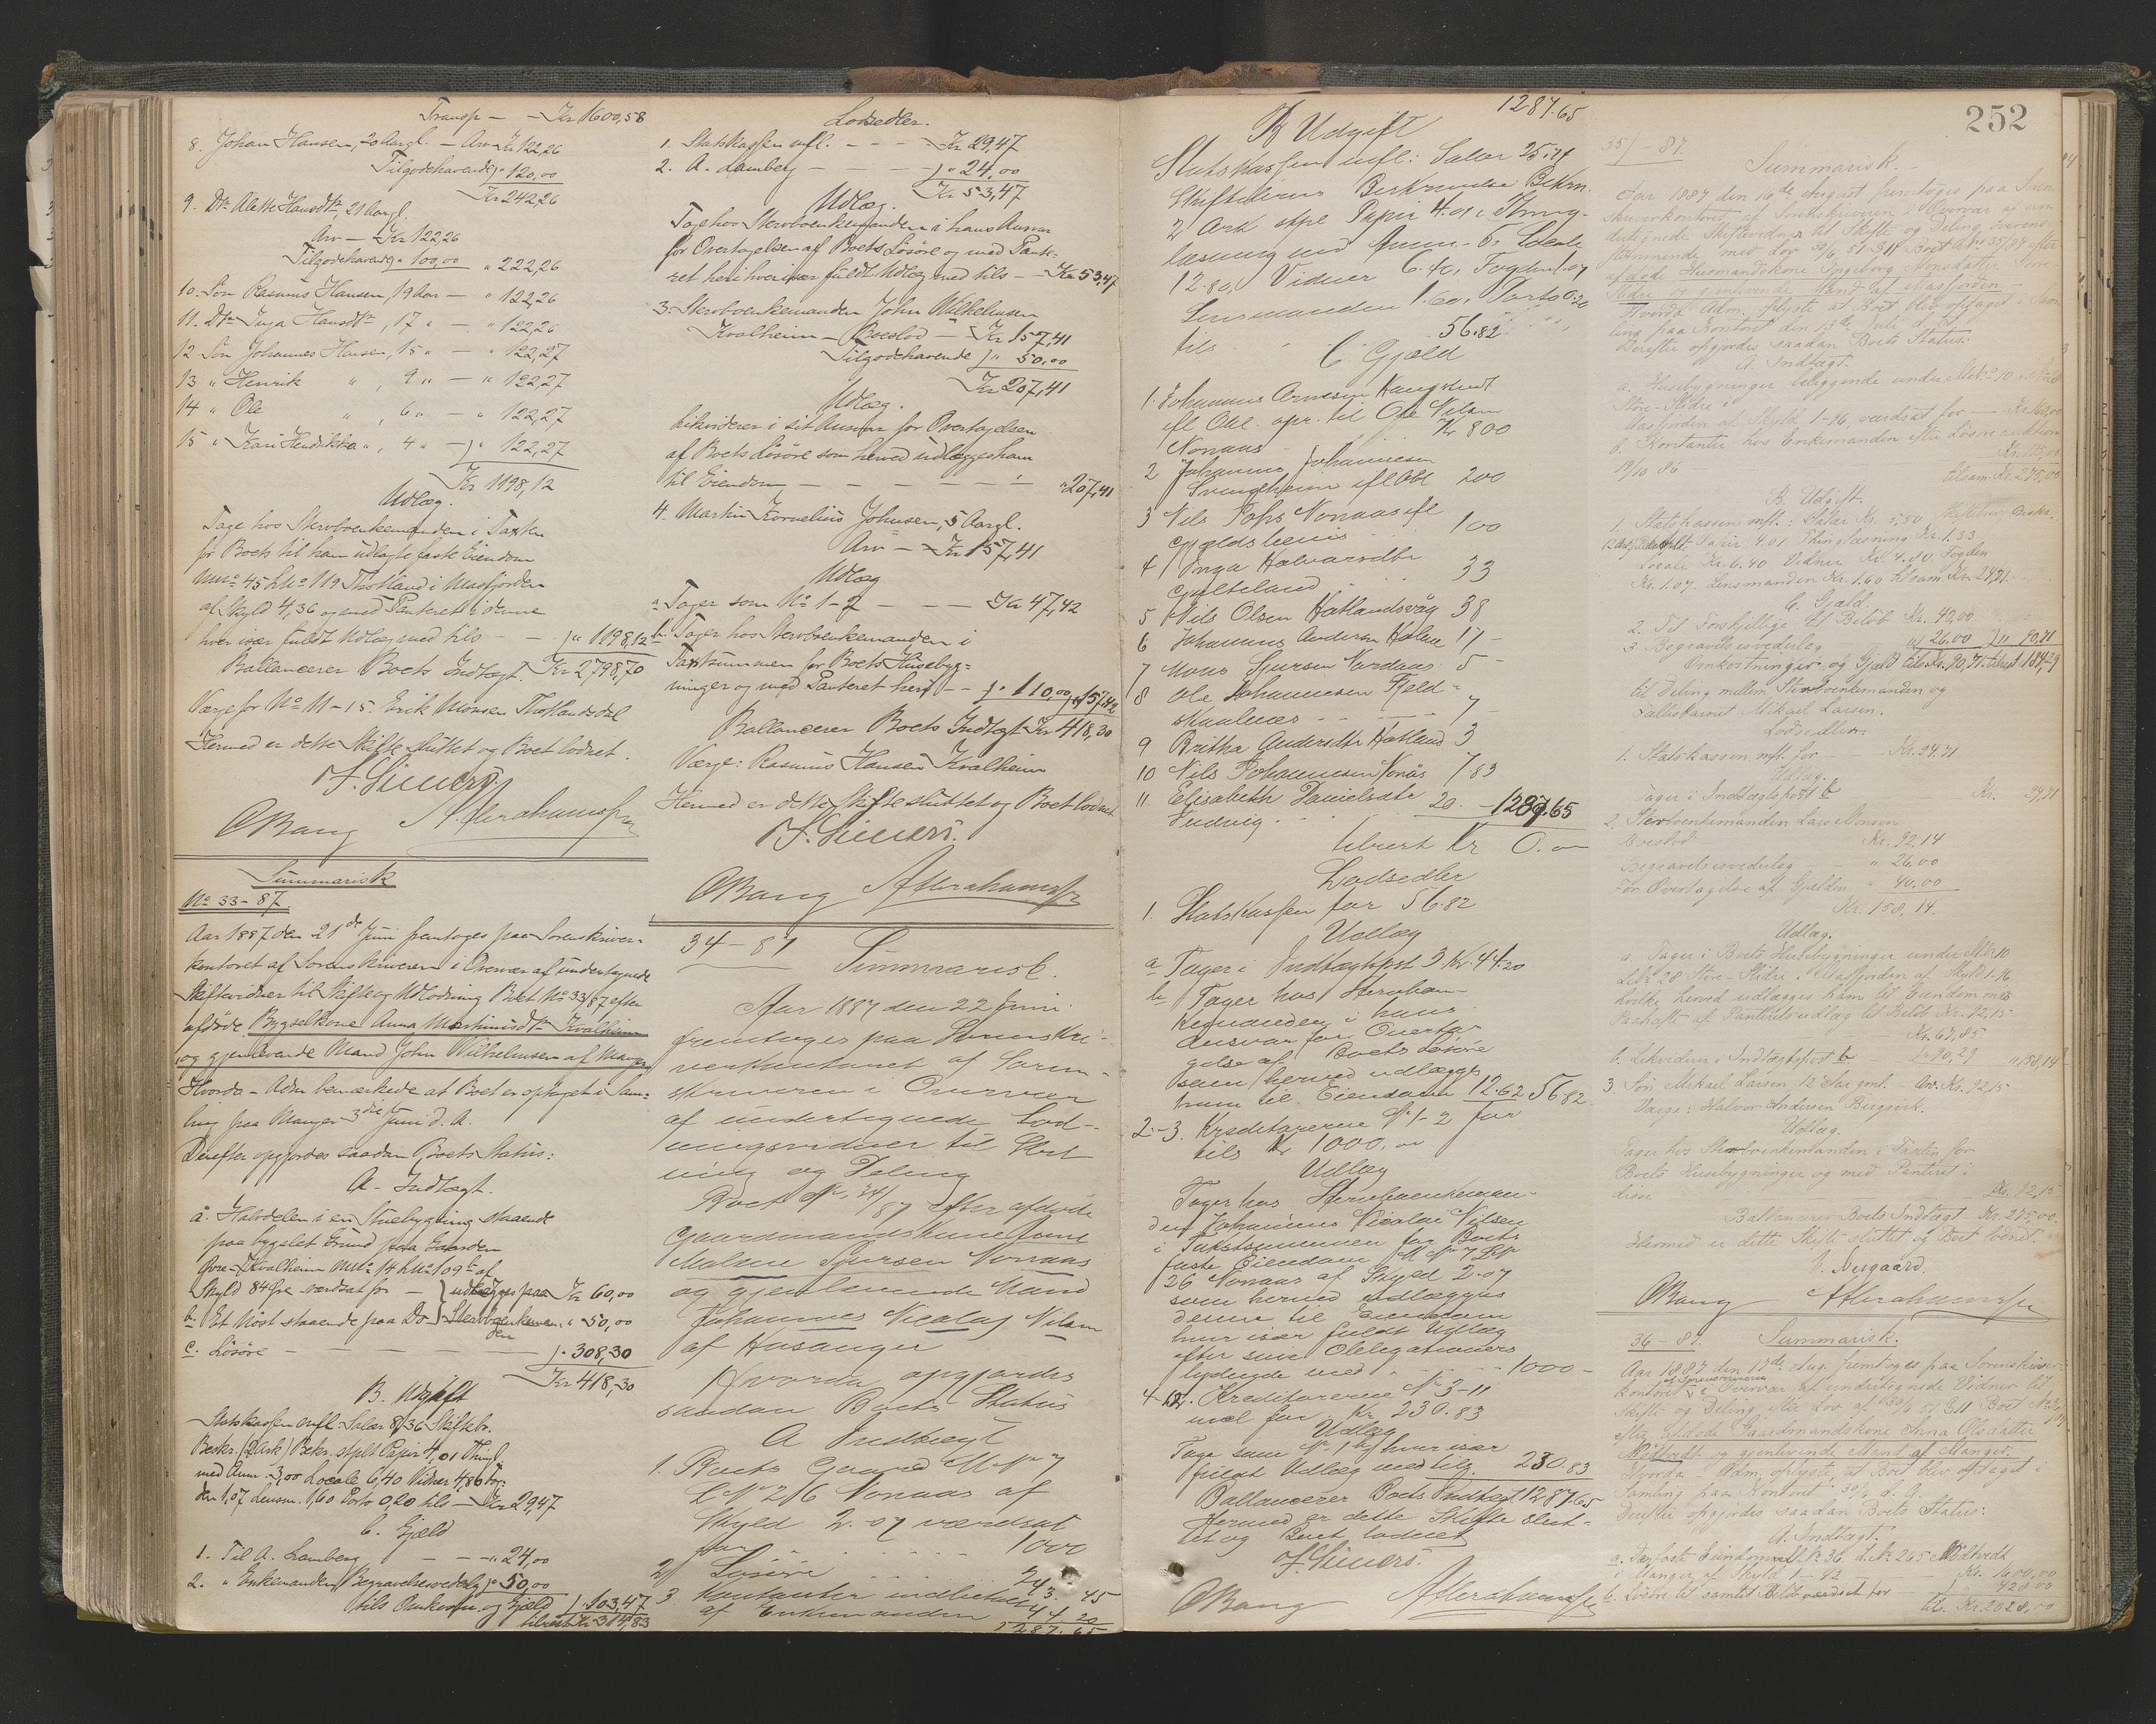 Transp — — Kr 1600,58
8. Johan Hansen, 20 Aargl. — Arv Kr 122,26
Tilgodehavende „ 120,00
Kr 242,26
9. Dtr Alette Hansdtr, 21 Aargl.
Arv — Kr 122,26
Tilgodehavende „ 100,00 „ 222,26
10. Søn Rasmus Hansen, 19 Aar — „ 122,26
11. Dtr Inga Hansdtr, 17 „ — „ 122,26
12 Søn Johannes Hansen, 15 „ — „ 122,27
13 „ Henrik „ , 9 „ — „ 122,27
14 „ Ole „ , 6 „ — „ 122,27
15 „ Kari Hendrikka „ , 4 „ — „ 122,27
Kr 1198,12
Udlæg.
Tage hos Stervboenkemanden i Taxten
for Boets til ham udlagte faste Eiendom
Mno 45 Lno 119 Thotland i Masfjorden
af Skyld 4,36 og med Panteret i denne
hver især fuldt Udlæg med tils — — „ 1198,12
Ballancerer Boets Indtægt. Kr 2798,70
Værge for No 11-15. Erik Monsen Thotlandsdal
Hermed er dette Skifte sluttet og Boet lodnet.
F. Siewers.
O Bang A. Abrahamsen
Summarisk
No 33-87.
Aar 1887 den 21de Juni fremtoges paa Sorenskriver-
kontoret af Sorenskriveren i Overvær af undertegnede
Skiftevidner til Skifte og Udlodning Boet No 33/87 efter
afdøde Bygselkone Anna Martinusdtr Kvalheim
og gjenlevende Mand John Wilhelmsen af Manger
Hvorda - Adm bemærkede at Boet er optaget i Sam-
ling paa Manger 3die Juni d. A.
Derefter opgjordes saadan Boets Status:
A. Indtægt.
a. Halvdelen i en Stuebygning staaende
paa bygslet Grund paa Gaarden
Øvre-Kvalheim Mno 14 Lno 109b af
Skyld 84 Øre værdsat for — udlægges paa Kr 60,00
b. Et Nøst staaende paa Do Stervboenkeman „ 50,00
den
c. Løsøre — — — — — „ 308,30
Kr 418,30
B. Udgift
Statskassen mfl: Salær 8,36 Skiftebr.
Beskr. (2 Ark) Bekr. stplt Papir 4,01 Thingl.
med Ann. 3,00 Locale 6,40 Vidner 4,80 Fog-
den 1,07 Lensm. 1,60 Porto 0,20 tils — Kr 29,47
C. Gjæld
1. Til A. Lamberg — — „ 24,00
2. „ Enkemanden Begravelsesvederlag „ 50,00
tils Omkostn. og Gjæld „ 103,47
tilrest Kr 314,83
Lodsedler.
1. Statskassen mfl. — — — Kr 29,47
2. A. Lamberg — — — „ 24,00
Kr 53,47
Udlæg.
Tage hos Stervboenkemanden i hans Ansvar
for Overtagelsen af Boets Løsøre og med Pante-
ret heri hver især fuldt Udlæg med tils — Kr 53,47
3. Stervboenkemanden John Wilhelmsen
Kvalheim — Boeslod — Kr 157,41
Tilgodehavende „ 50,00
Kr 207,41
Udlæg.
Likviderer i sit Ansvar for Overtagelsen
af Boets Løsøre som herved udlægges ham
til Eiendom — — — — — — „ 207,41
4. Martin Kornelius Johnsen, 5 Aargl.
Arv — Kr 157,41
Udlæg
a. Tager som No 1-2 — — — Kr 47,42
b. Tager hos Stervboenkemanden i
Taxtsummen for Boets Husebyg-
ninger og med Panteret heri — — „ 110,00 „ 157,42
Ballancerer Boets Indtægt Kr 418,30
Værge: Rasmus Hansen Kvalheim
Hermed er dette Skifte sluttet og Boet lodnet
F. Siewers.
O Bang A Abrahamsen
34-87 Summarisk.
Aar 1887 den 22 Juni
fremtoges paa Sorenskri-
verkontoret af Soren-
skriveren i Overvær
af undertegnede Lod-
ningsvidner til Slut-
ning og Deling
Boet No 34/87 efter afdøde
Gaardmandskone
Malene Sjursen Nonaas
og gjenlevende Mand
Johannes Nicolay Nilsen
af Hosanger
Hvorda opgjordes
saadan Boets Status
A Indtægt
1. Boets Gaard M.No 7
L No 26 Nonaas af
Skyld 2.07 værdsat
for . . . . 1000
2 Løsøre . . . 243. 45
3. Kontanter indbetalt
af Enkemanden 44. 20
1287. 65
1287.65
B Udgift
Statskassen mfl: Salær 25.74
Skiftebrevs Beskrivelse Bekrn.
2 Ark stpl Papir 4.01, Thing-
læsning med Ann. 5, Locale
12.80, Vidner 6.40, Fogden 1.07
Lensmanden 1.60, Porto 0.20
tils . . 56.82
C Gjæld
1. Johannes Arnesen Haugstvedt
ifl Obl. opr. til Ole Nilsen
Nonaas Kr 800
2 Johannes Johannesen
Svingheim ifl Obl 200
3 Nils Johs Nonaas ifl
Gjældsbevis 100
4 Inga Halvorsdtr
Gulteland . . . 33
5 Nils Olsen Hatlandsvåg 38
6 Johannes Andersen Kalve 17 -
7 Mons Sjursen Nordaas 5 -
8 Ole Johannesen Fjeld-
skaalnes . . . 7 -
9 Britha Andersdtr Hatland 3
10 Nils Johannesen Nonås 7 83
11. Elisabeth Danielsdtr
Indvig . . 20. — 1287.65
tilrest Kr 0.00
Lodsedler
1. Statskassen for 56.82
Udlæg
a Tager i Indtægtspost 3 Kr. 44.20
b Tager hos Stervboen-
kemanden i hans
Ansvar for Overta-
gelse af Boets Løsøre
som herved udlægges
ham til Eiendom 12.62 56.82
2-3. Kreditorerne No 1-2 for
tils Kr 1000.00
Udlæg
Tager hos Stervboenkeman-
den Johannes Nicolai Nilsen
i Takstsummen for Boets
faste Eiendom M No 7 L No
26 Nonaas af Skyld 2.07
som herved udlægges
denne til Eiendom
hver især fuldt Udlæg
efter sine Obligationers
lydende med . . . . 1000 -
4-12. Kreditorerne No 3-11
incl for Kr. 230.83
Udlæg
Tage som No 1 b hver især
fuldt Udlæg med tils. 230.83
Ballancerer Boets Indtægt 1287.65
Hermed er dette Skifte slut-
tet og Boet lodnet
F. Siewers.
O Bang A Abrahamsen
252
35/-87.
Summarisk.
Aar 1887 den 16de August fremtoges paa Soren-
skriverkontoret af Sorenskriveren i Overvær af un-
dertegnede Skiftevidner til Skifte og Deling overens-
stemmende med Lov 30/6 51 § 11 Boet No 35/87 efter
afdøde Husmandskone Ingeborg Monsdatter Store
Slidre og gjenlevende Mand af Masfjorden.
Hvorda Adm. oplyste at Boet blev optaget i Sam-
ling paa Kontoret den 13de Juli
Derefter opgjordes saadan Boets Status:
A. Indtægt.
a. Husebygninger beliggende under M.No 10 L.No 28
Store-Slidre i
Masfjorden af Skyld 1-76, værdsat for — Kr. 160,00
b. Kontanter hos Enkemanden efter Løsøreauktion
19/10 86 Kr. 115,00
tilsam. Kr. 275,00
B. Udgift.
1. Statskassen mfl.: Salær Kr. 5,50 Skiftebrev Beskr.
12 Ark stplt. Papir 4.01 Thinglæsning Kr. 1.33
Locale Kr. 6.40 Vidner Kr. 4.80 Fogden
Kr. 1.07 Lensmanden Kr. 1.60 tilsam. Kr. 24,71
C. Gjæld.
2. Til Forskjellige til Beløb Kr. 40,00
3 Begravelsesvederlag „ 26,00 „ 90,71
Omkostninger og Gjæld tils. Kr. 90,71 tilrest 184,29
til Deling mellem Stervboenkemanden og
Fællesbarnet Mikael Larsen.
Lodsedler.
1. Statskassen mfl. for — Kr. 24,71
Udlæg.
Tager i Indtægtspost b Kr. 24,71
2. Stervboenkemanden Lars Monsen
Boeslod — Kr. 92,14
Begravelsesvederlag — — „ 26,00
For Overtagelse af Gjælden „ 40,00
Kr. 158,14.
Udlæg.
a. Tager i Boets Husebygninger under M.No 10
L.No 28 Store Slidre i Masfjorden af Skyld 1-76
hvilke herved udlægges ham til Eiendom med
Paahæft af Panteretsudlæg til Beløb Kr. 92,15
Kr. 67,85
b. Likviderer i Indtægtspost b „ 90,29 „ 158,14
3 Søn Mikael Larsen, 12 Aar gml. — Arv. Kr. 92,15
Værge: Halvor Andersen Bergsvik.
Udlæg.
Tager hos Stervboenkemanden i Taxten for
Boets Husebygninger og med Panteret i
disse — Kr. 92,15
Ballancerer Boets Indtægt — Kr. 275,00.
Hermed er dette Skifte sluttet og Boet lodnet.
Nergaard.
O Bang A Abrahamsen
36-87. Summarisk.
Aar 1887 den 19de Aug. fremtoges paa Sorenskriver-
af Sorenskriveren
kontoret i Overvær af undertegnede Vidner til
Skifte og Deling efter Lov af 30/6 51 § 11 Boet No 36/87
efter afdøde Gaardmandskone Anna Olsdatter
Midtvedt og gjenlevende Mand af Manger.
Hvorda — Adm. oplyste, at Boet blev optaget i
Samling paa Kontoret d. A.
Derefter opgjordes saadan Boets Status:
A. Indtægt.
a. Den faste Eiendom M.No 36. L.No 265 Midtvedt
i Manger af Skyld 1-92 — Kr. 1600,00
b. Løsøre til samlet Beløb værdsat for „ 428,00
til. Kr. 2028,00